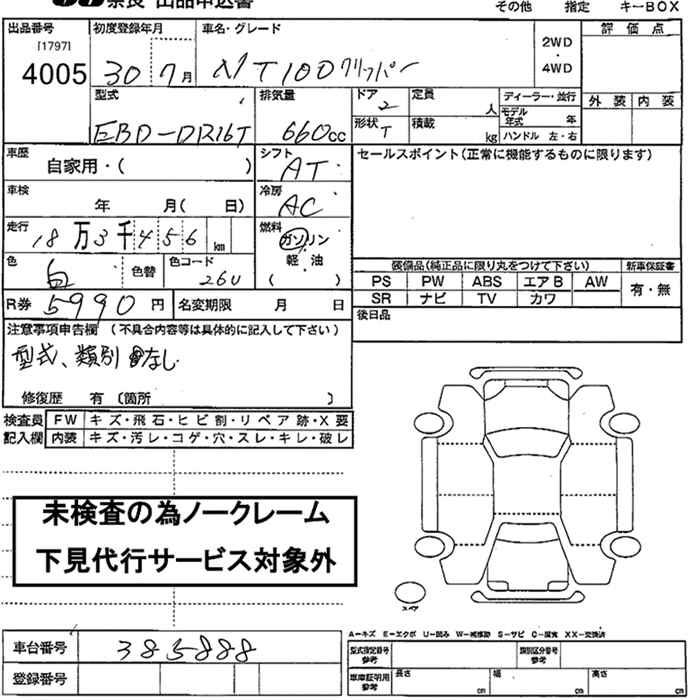 奈良 出品申込書 その他 指定 キーBOX
出品番号 初度登録年月 車名・グレード 評価点
[1797] 2WD
4005 30 7月 NT100クリッパー ・
4WD
型式 排気量 ドア 定員 ディーラー・並行 外装 内装
2 人 モデル年式 年
EBD-DR16T 660cc 形状 T 積載 kg ハンドル 左・右
車歴 シフト セールスポイント(正常に機能するものに限ります)
自家用・( ) AT
車検 冷房
年 月( 日) AC
走行 燃料
18万3千456km ガソリン
色 色コード 軽・油
白 色替 26U ( )
装備品(純正品に限り丸をつけて下さい) 新車保証書
PS PW ABS エアB AW 有・無
SR ナビ TV カワ
R券 5990円 名変期限 月 日
後日品
注意事項申告欄(不具合内容等は具体的に記入して下さい)
型式、類別なし
修復歴 有〔箇所 〕
検査員 FW キズ・飛石・ヒビ割・リペア跡・X要
記入欄 内装 キズ・汚レ・コゲ・穴・スレ・キレ・破レ
未検査の為ノークレーム
下見代行サービス対象外
スペア
A-キズ E-エクボ U-凹み W-補修跡 S-サビ C-腐食 XX-交換済
車台番号 385888
型式指定番号 参考 類別区分番号 参考
登録番号
車庫証明用 参考 長さ cm 幅 cm 高さ cm